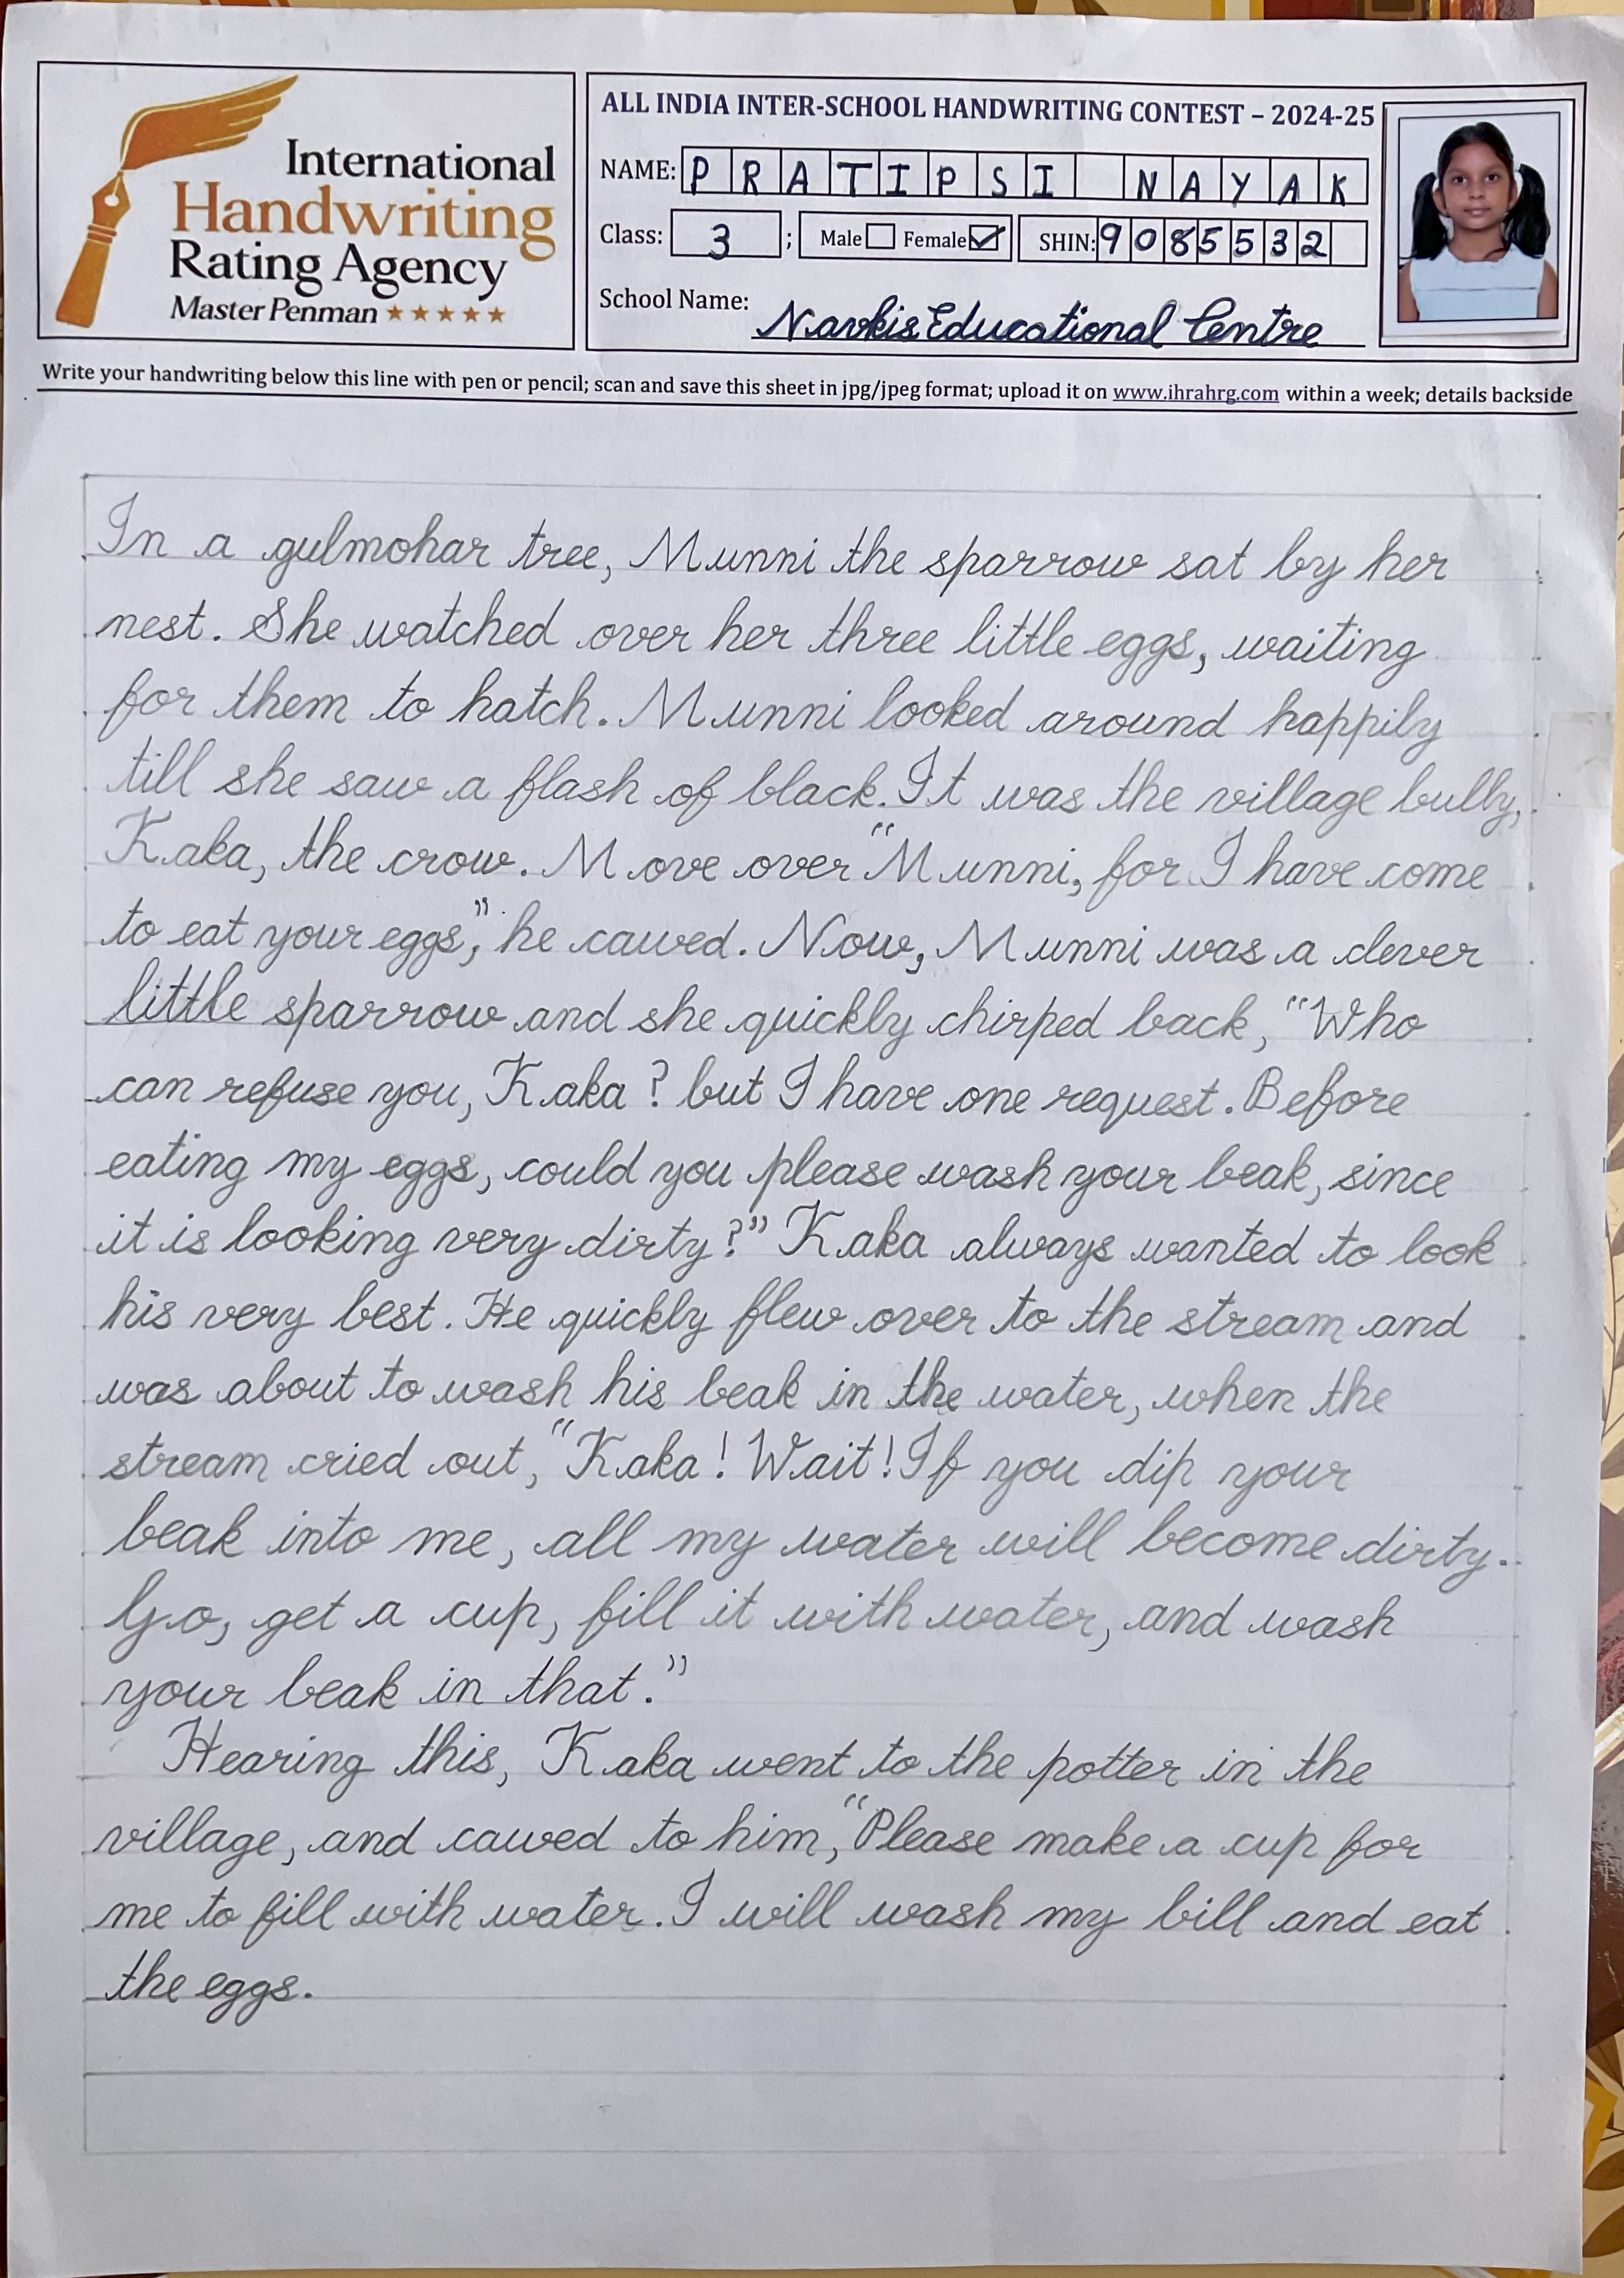 International
Handwriting
Rating Agency
Master Penman ★★★★★
ALL INDIA INTER-SCHOOL HANDWRITING CONTEST – 2024-25
NAME: PRATIPSI NAYAK
Class: 3 ; Male Female SHIN: 9085532
School Name: Navkis Educational Centre
Write your handwriting below this line with pen or pencil; scan and save this sheet in jpg/jpeg format; upload it on www.ihrahrg.com within a week; details backside
In a gulmohar tree, Munni the sparrow sat by her
nest. She watched over her three little eggs, waiting
for them to hatch. Munni looked around happily
till she saw a flash of black. It was the village bully,
Kaka, the crow. Move over “Munni, for I have come
to eat your eggs,” he cawed. Now, Munni was a clever
little sparrow and she quickly chirped back, “Who
can refuse you, Kaka? but I have one request. Before
eating my eggs, could you please wash your beak, since
it is looking very dirty?” Kaka always wanted to look
his very best. He quickly flew over to the stream and
was about to wash his beak in the water, when the
stream cried out, “Kaka! Wait! If you dip your
beak into me, all my water will become dirty.
Go, get a cup, fill it with water, and wash
your beak in that.”
Hearing this, Kaka went to the potter in the
village, and cawed to him, “Please make a cup for
me to fill with water. I will wash my bill and eat
the eggs.